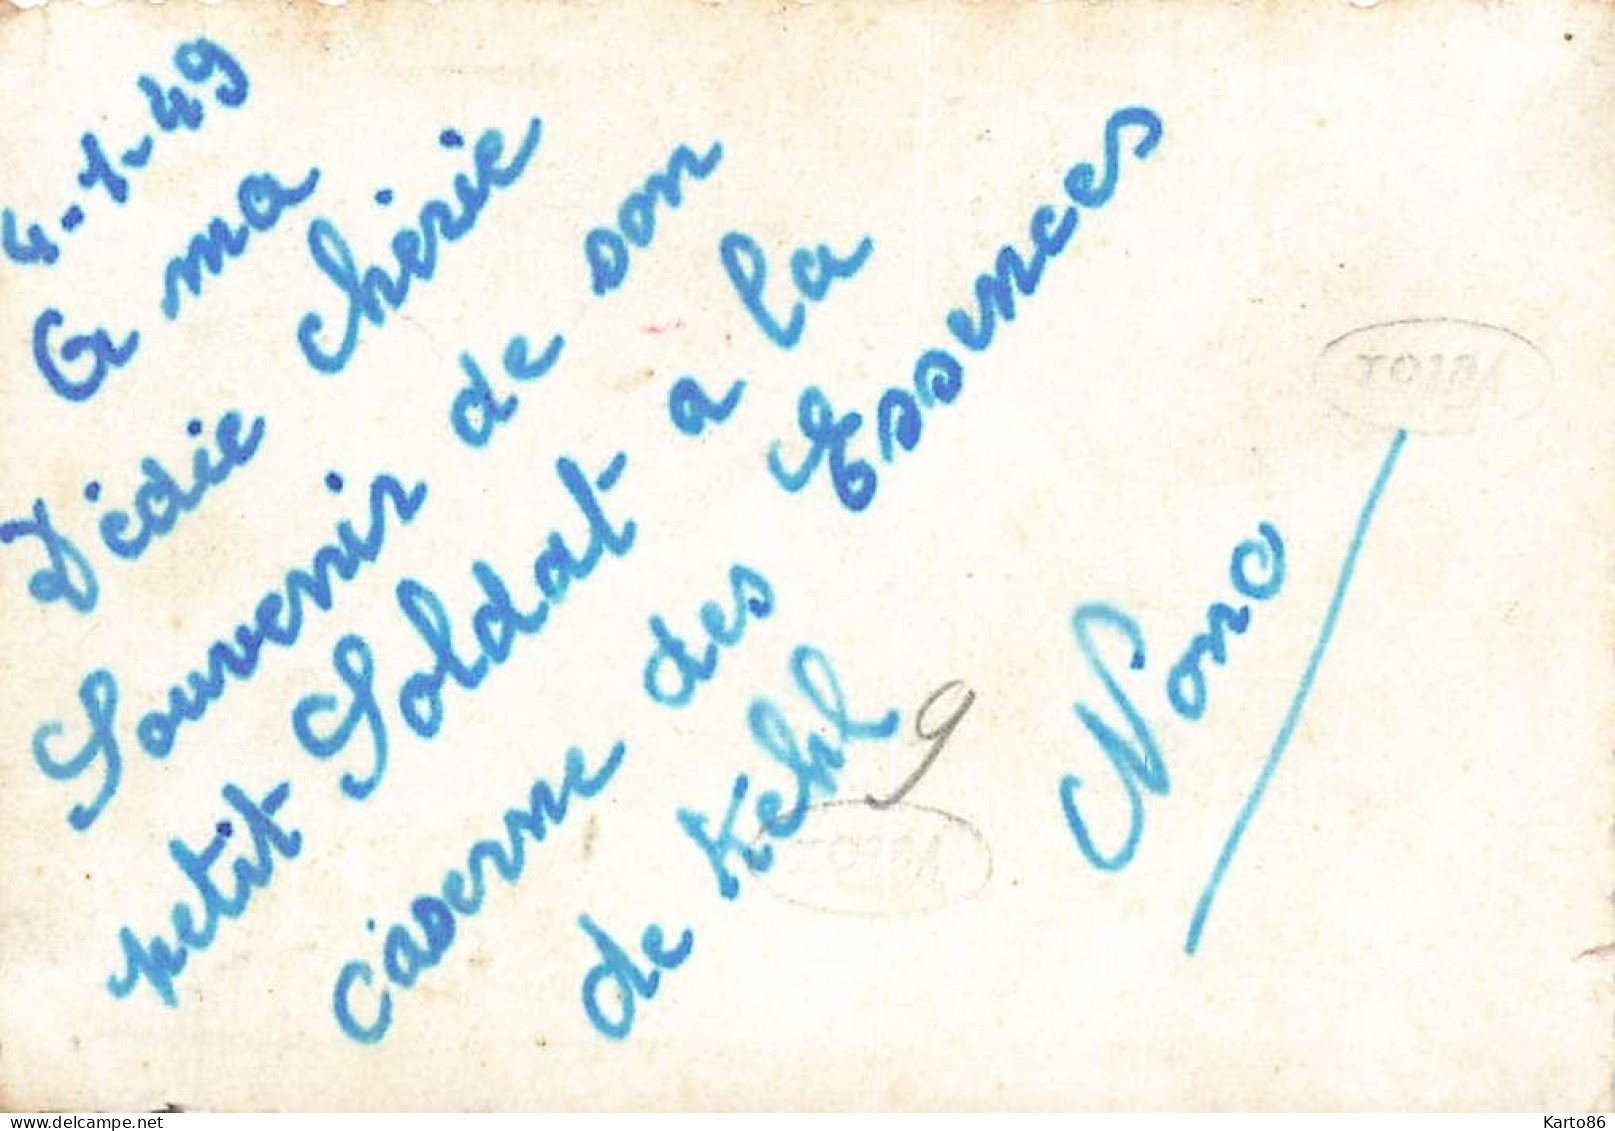 4-1-49
A ma
Dédie chérie
Souvenir de son
petit Soldat a la
caserne des Essences
de Kehl
Nono
9
Karto86